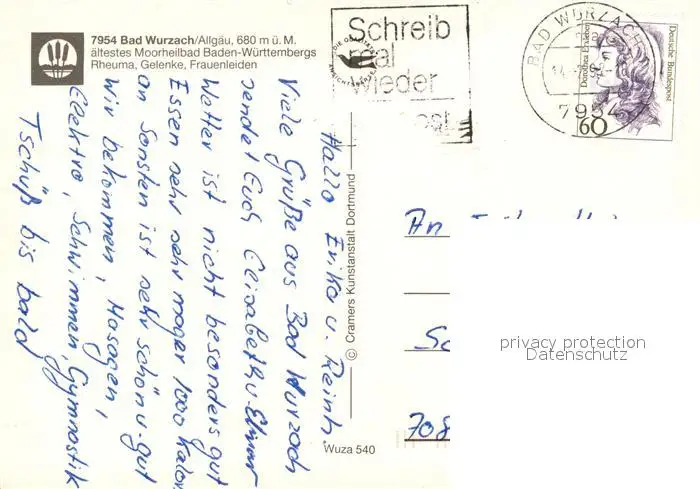 7954 Bad Wurzach/Allgäu, 680 m ü. M.
ältestes Moorheilbad Baden-Württembergs
Rheuma, Gelenke, Frauenleiden
Schreib
mal
wieder
BAD WURZACH
7954
Dorothea Erxleben
Deutsche Bundespost
60
Hallo Erika u. Reinh.
Viele Grüße aus Bad Wurzach
sendet Euch Elisabeth u. Elmar
Wetter ist nicht besonders gut
Essen sehr sehr mager 1000 Kalor
an sonsten ist sehr schön u. gut
wir bekommen, Masagen,
Elektro, Schwimmen, Gymnostik
Tschüß bis bald
© Cramers Kunstanstalt Dortmund
Wuza 540
An
708
privacy protection
Datenschutz